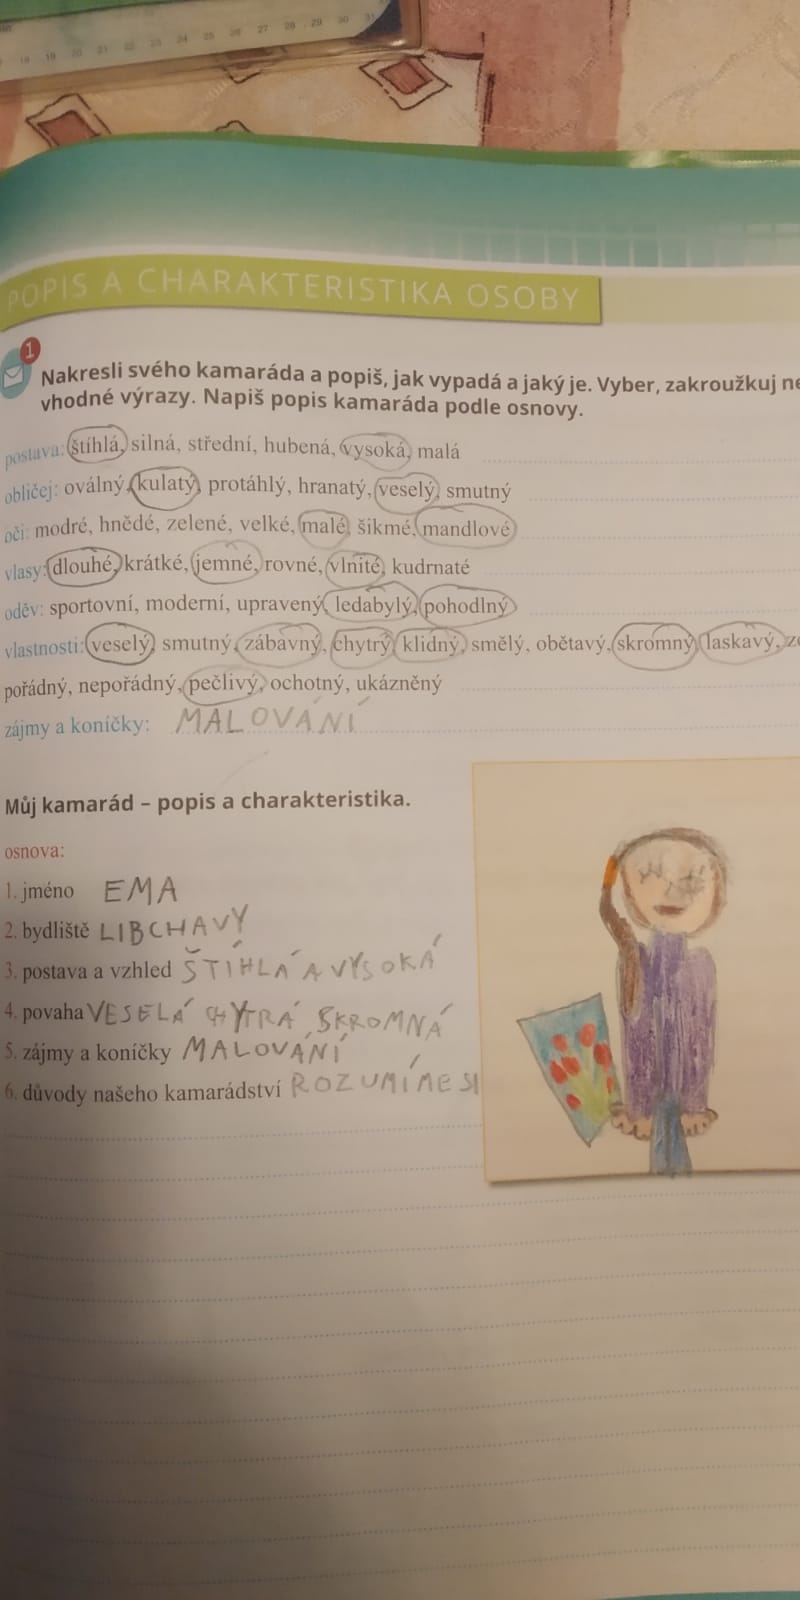 18 19 20 21 22 23 24 25 26 27 28 29 30 31
POPIS A CHARAKTERISTIKA OSOBY
1
Nakresli svého kamaráda a popiš, jak vypadá a jaký je. Vyber, zakroužkuj
vhodné výrazy. Napiš popis kamaráda podle osnovy.
postava: štíhlá, silná, střední, hubená, vysoká, malá
obličej: oválný, kulatý, protáhlý, hranatý, veselý, smutný
oči: modré, hnědé, zelené, velké, malé, šikmé, mandlové
vlasy: dlouhé, krátké, jemné, rovné, vlnité, kudrnaté
oděv: sportovní, moderní, upravený, ledabylý, pohodlný
vlastnosti: veselý, smutný, zábavný, chytrý, klidný, smělý, obětavý, skromný, laskavý,
pořádný, nepořádný, pečlivý, ochotný, ukázněný
zájmy a koníčky: MALOVÁNÍ
Můj kamarád – popis a charakteristika.
osnova:
1. jméno EMA
2. bydliště LIBCHAVY
3. postava a vzhled ŠTÍHLÁ A VYSOKÁ
4. povaha VESELÁ CHYTRÁ SKROMNÁ
5. zájmy a koníčky MALOVÁNÍ
6. důvody našeho kamarádství ROZUMÍME SI